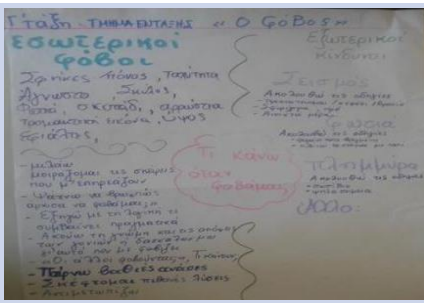 Γ΄ τάξη - ΤΜΗΜΑ ΕΝΤΑΞΗΣ « Ο φόβος »
Εσωτερικοί
φόβοι
πόνος, Ταχύτητα
Άγνωστο Σκύλος,
Φωτιά, σκοτάδι, αρρώστια
τρομακτική εικόνα, ύψος
Εφιάλτης,
- μιλάω
μοιράζομαι τις σκέψεις
που μ' επηρεάζουν
- Ψάχνω να βρω γιατί
άρχισα να φοβάμαι
- Εξηγώ με τη λογική τι
συμβαίνει πραγματικά
- Ακούω τη γνώμη και τις
των γονιών ή δασκάλων μου
γι' αυτό που με φοβίζει
- Οι άλλοι φοβούνται; Τι κάνουν;
- Παίρνω βαθιές ανάσες
- Σκέφτομαι πιθανές λύσεις
- Αντιμετωπίζω
Τι κάνω
όταν
φοβάμαι;
Εξωτερικοί
κίνδυνοι
Σεισμός
Ακολουθώ τις οδηγίες
Ακολουθώ τις οδηγίες
Πλημμύρα
Ακολουθώ τις οδηγίες
Άλλο: